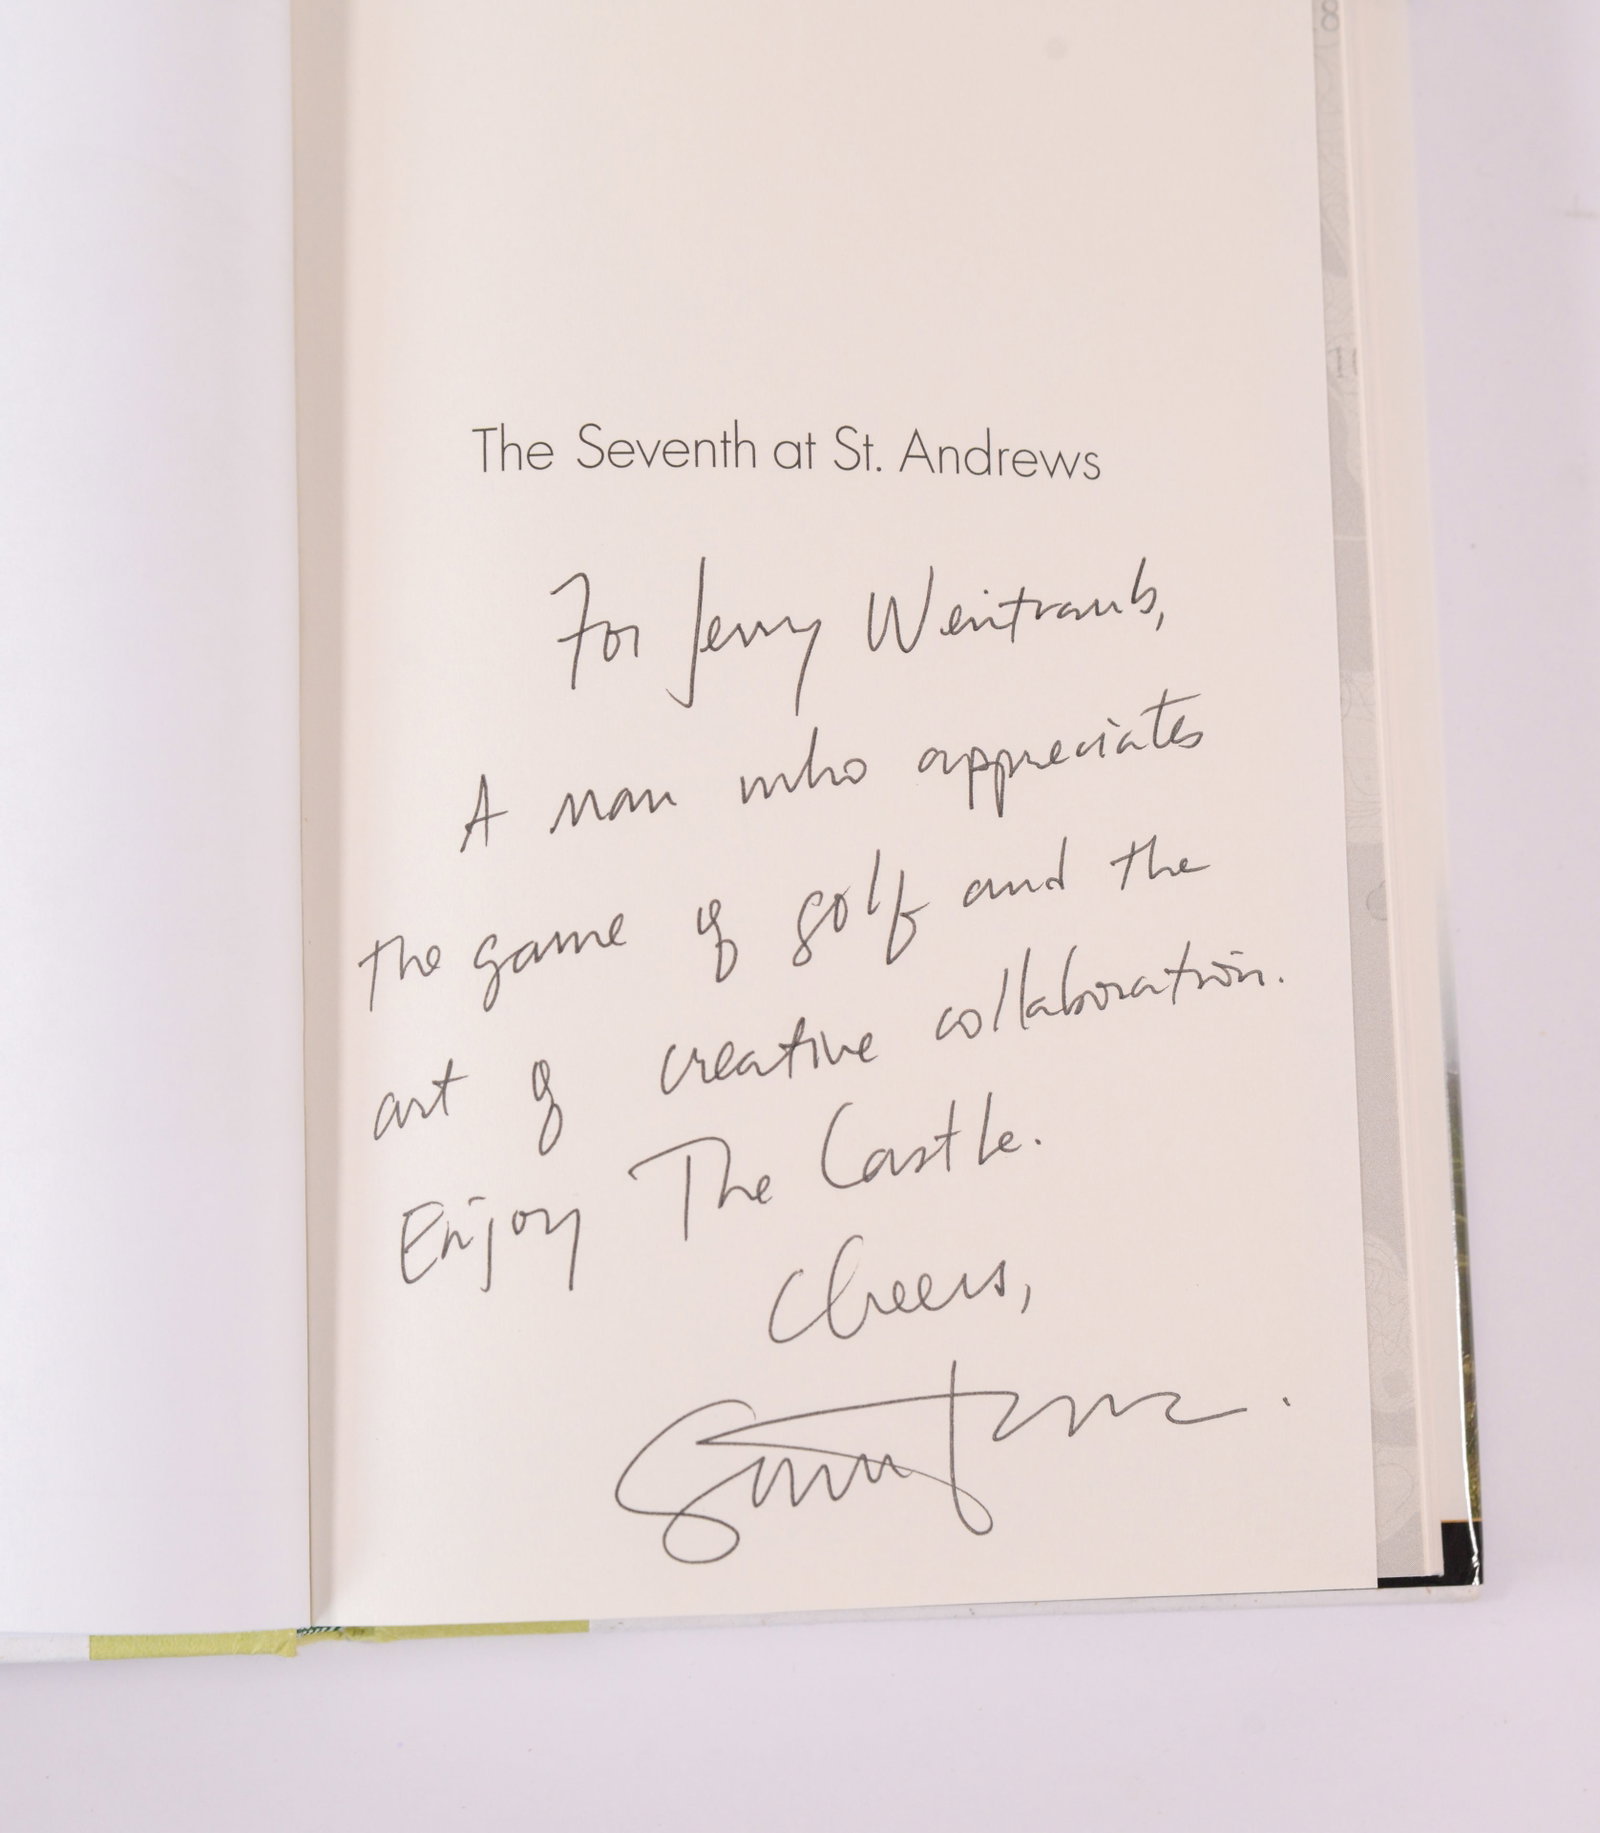 The Seventh at St. Andrews
For Jerry Weintraub,
A man who appreciates
the game of golf and the
art of creative collaboration.
Enjoy The Castle.
Cheers,